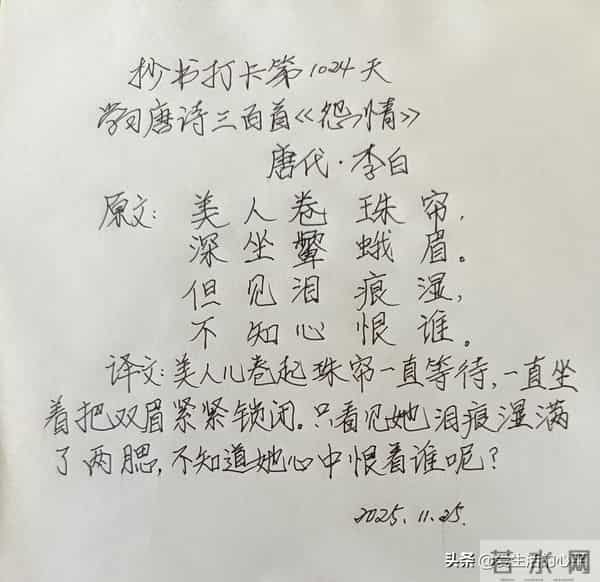 抄书打卡第1024天
学习唐诗三百首《怨情》
唐代·李白
原文: 美人卷珠帘,
深坐颦蛾眉。
但见泪痕湿,
不知心恨谁。
译文:美人儿卷起珠帘一直等待,一直坐
着把双眉紧紧锁闭。只看见她泪痕湿满
了两腮,不知道她心中恨着谁呢?
2025.11.25.
头条 @爱生活的心
若水网